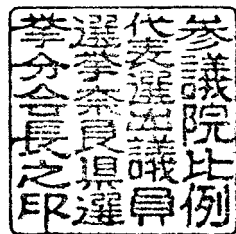 参議院比例
代表選出議員
選挙奈良県選
挙分会長之印